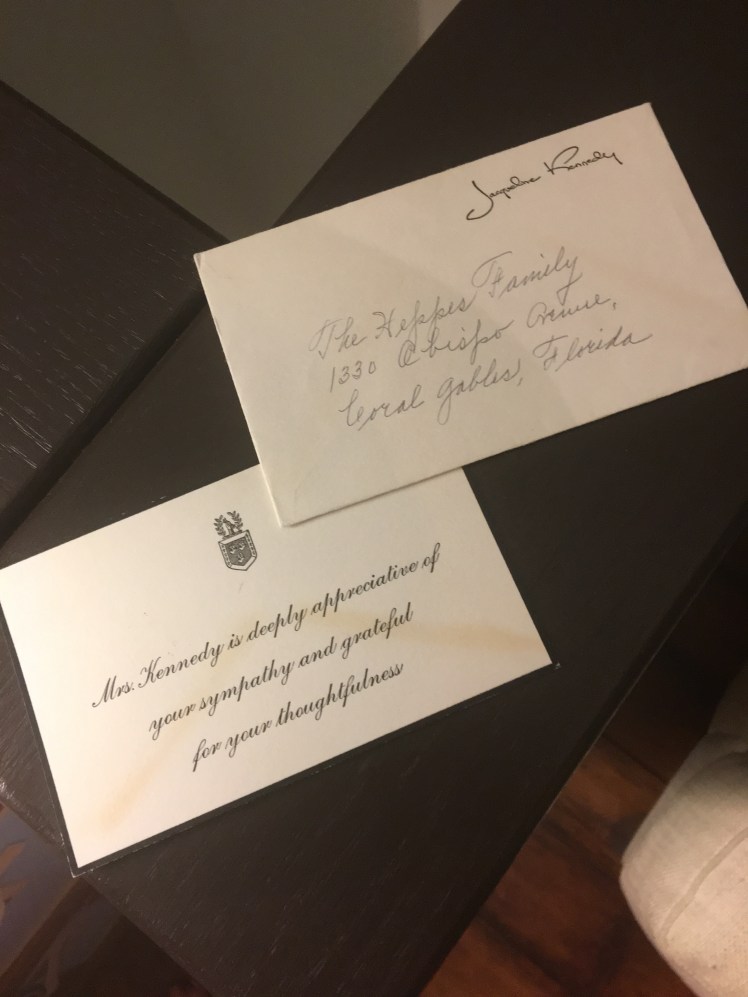 Jacqueline Kennedy
The Heppes Family
1330 Obispo Avenue,
Coral Gables, Florida
Mrs. Kennedy is deeply appreciative of
your sympathy and grateful
for your thoughtfulness